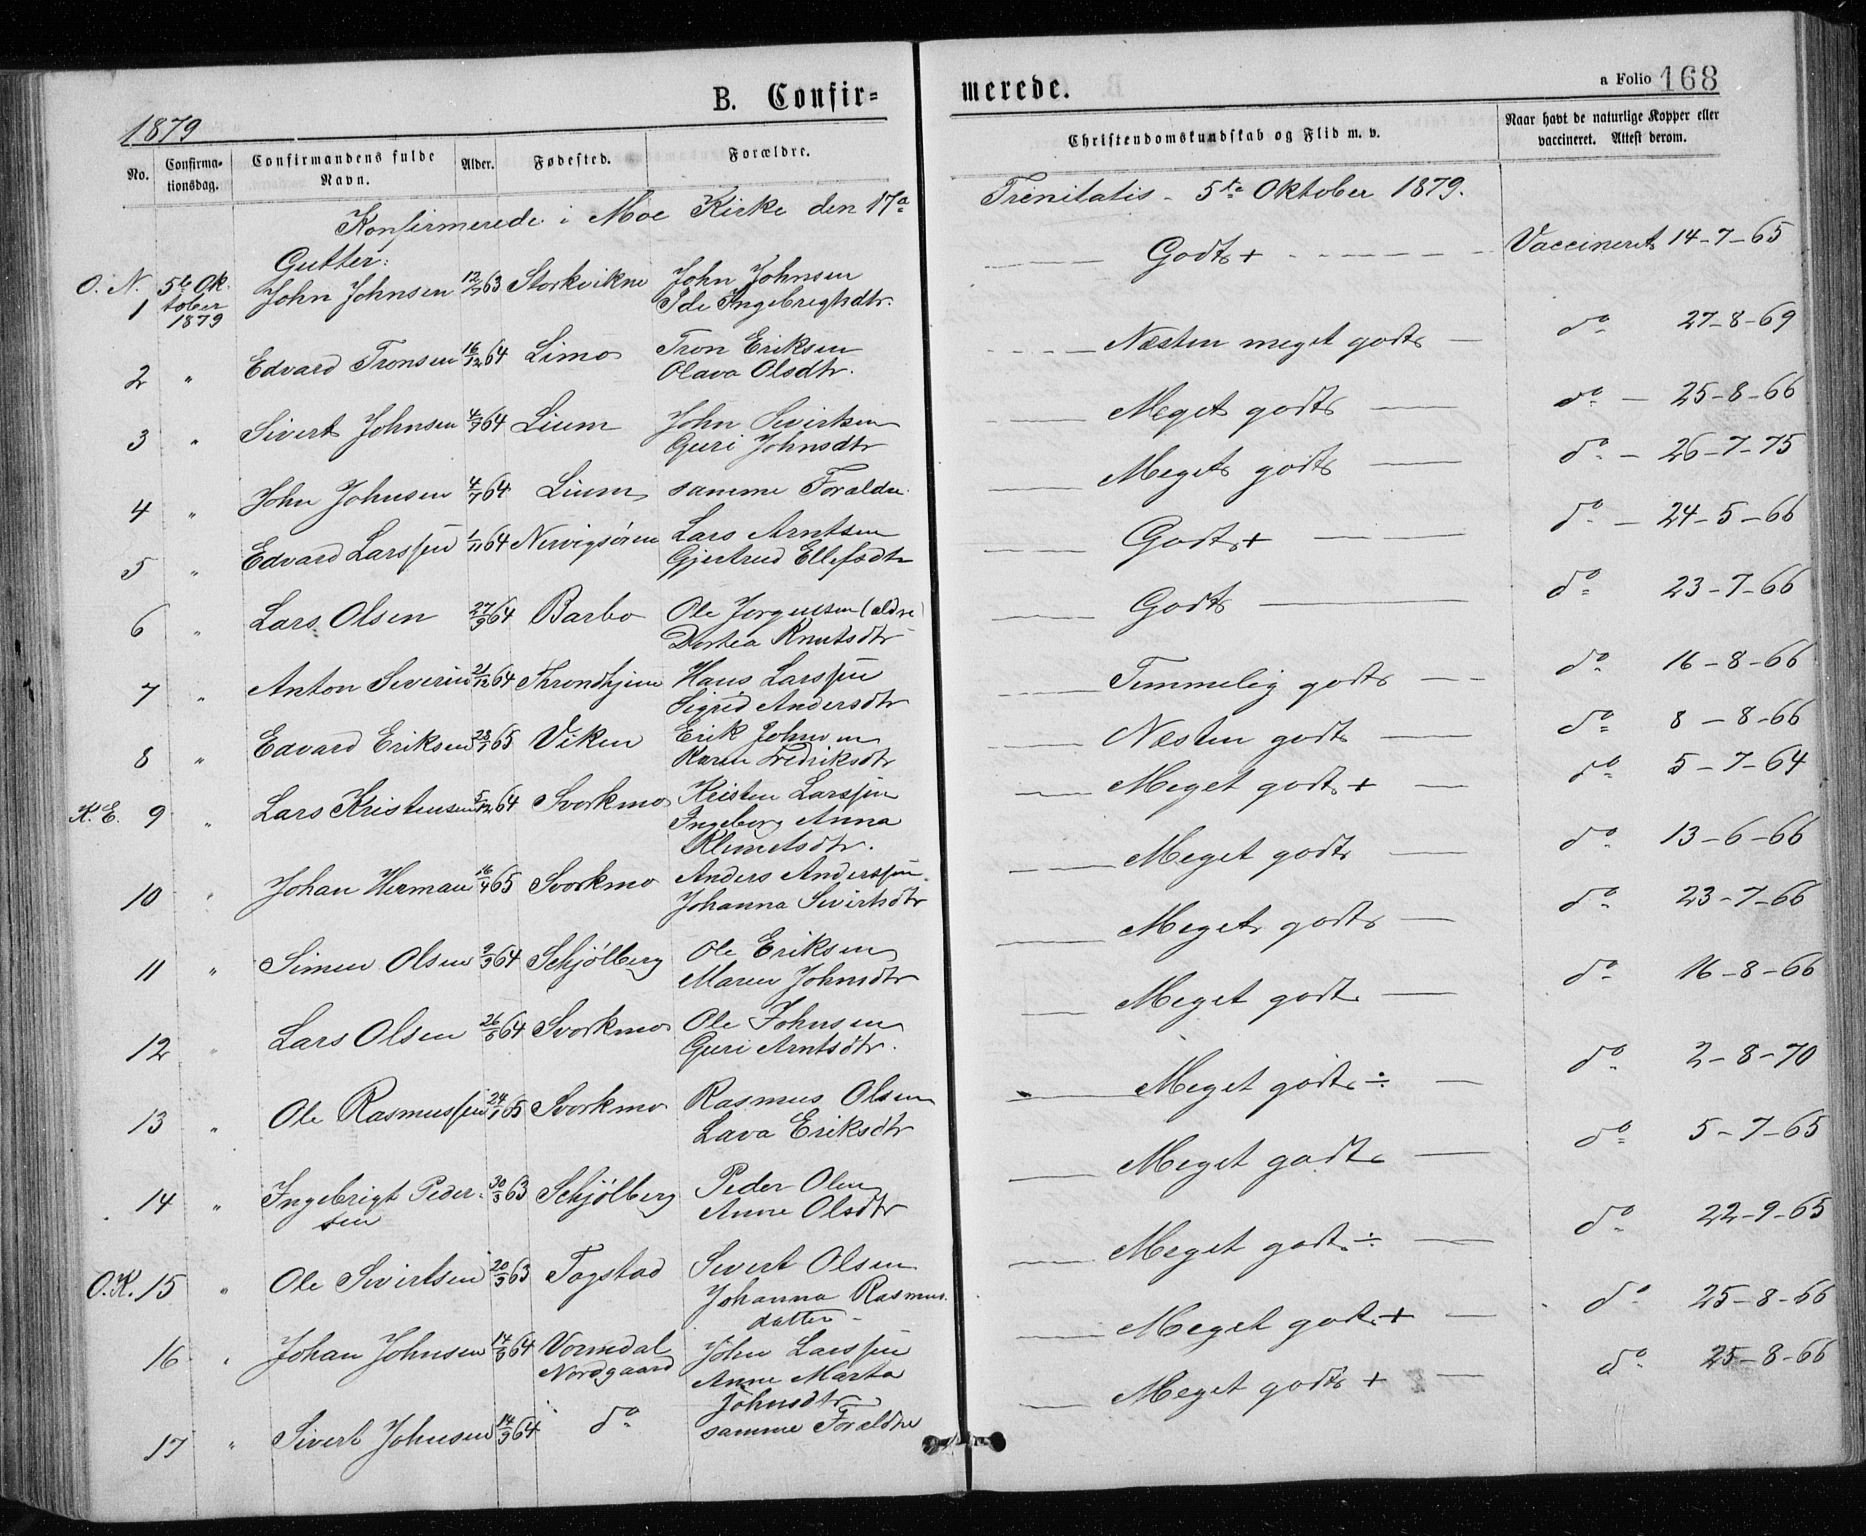 B. Confir=
merede.
a Folio 168
1879
No.
Confirma-
tionsdag.
Confirmandens fulde
Navn.
Alder.
Fødested.
Forældre.
Christendomskundskab og Flid m. v.
Naar havt de naturlige Kopper eller
vaccineret. Attest derom.
Konfirmerede i Moe Kirke den 17de Trenitatis - 5te Oktober 1879.
Gutter:
O. N. 1 5te Ok- John Johnsen 12/7 63 Storkvikne John Johnsen Godt + Vaccineret 14-7-65
tober
1879
Ingebrigtsdtr.
2 " Edvard Tronsen 16/12 64 Limo Tron Eriksen Næsten meget godt do 27-8-69
Olava Olsdtr.
3 " Sivert Johnsen 4/7 64 Lium John Sivertsen Meget godt do - 25-8-66
Guri Johnsdtr
4 " John Johnsen 4/7 64 Lium samme Foraldre Meget godt do - 26-7-75
5 " Edvard Larssen 1/11 64 Lars Arntsen Godt + do - 24-5-66
Gjertrud Ellefsdtr
6 " Lars Olsen 27/9 64 Barbo Ole Jørgensen (aldre) Godt do 23-7-66
Dortea Knutsdtr
7 " Anton Severin 21/12 64 Throndhjem Hans Larssen Temmelig godt do 16-8-66
Sigrid Andersdtr
8 " Edvard Eriksen 28/1 65 Viken Erik Johnsen Næsten godt do 8-8-66
Karen Fredriksdtr
K. E. 9 " Lars Kristensen 5/12 64 Svorkmo Kristen Larssen Meget godt + do 5-7-64
Ingeborg Anna
Klemetsdtr.
10 " Johan Herman 16/4 65 Svorkmo Anders Anderssen Meget godt do 13-6-66
Johanna Sivertsdtr
11 " Simen Olsen 9/9 64 Schjølberg Ole Eriksen Meget godt do 23-7-66
Maren Johnsdtr
12 " Lars Olsen 26/5 64 Svorkmo Ole Johnsen Meget godt do 16-8-66
Guri Arntsdtr.
13 " Ole Rasmussen 24/1 65 Svorkmo Rasmus Olsen Meget godt ÷ do 2-8-70
Lava Eriksdtr
14 " Ingebrigt Peder- 30/3 63 Schjølberg Peder Olsen Meget godt do 5-7-65
sen Anne Olsdtr
O. K. 15 " Ole Sivertsen 20/9 63 Fagstad Sivert Olsen Meget godt ÷ do 22-9-65
Johanna Rasmus-
datter
16 " Johan Johnsen 14/9 64 Vormdal John Larssen Meget godt + do 25-8-66
Nordgaard Anne Marta
Johnsdtr
17 " Sivert Johnsen 14/9 64 do samme Foraldre Meget godt + do 25-8-66